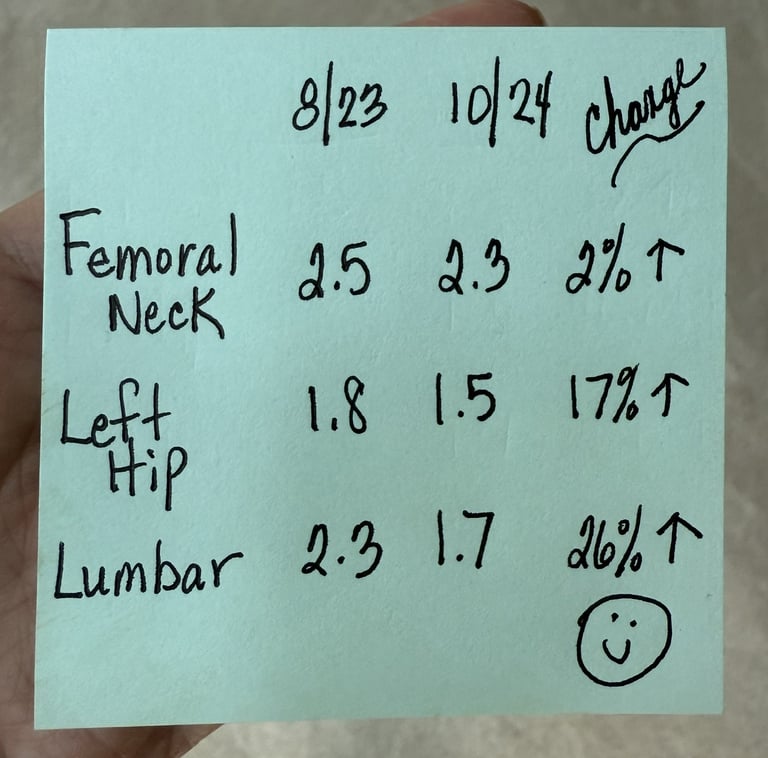 8/23 10/24 change
Femoral Neck 2.5 2.3 2% ↑
Left Hip 1.8 1.5 17% ↑
Lumbar 2.3 1.7 26% ↑